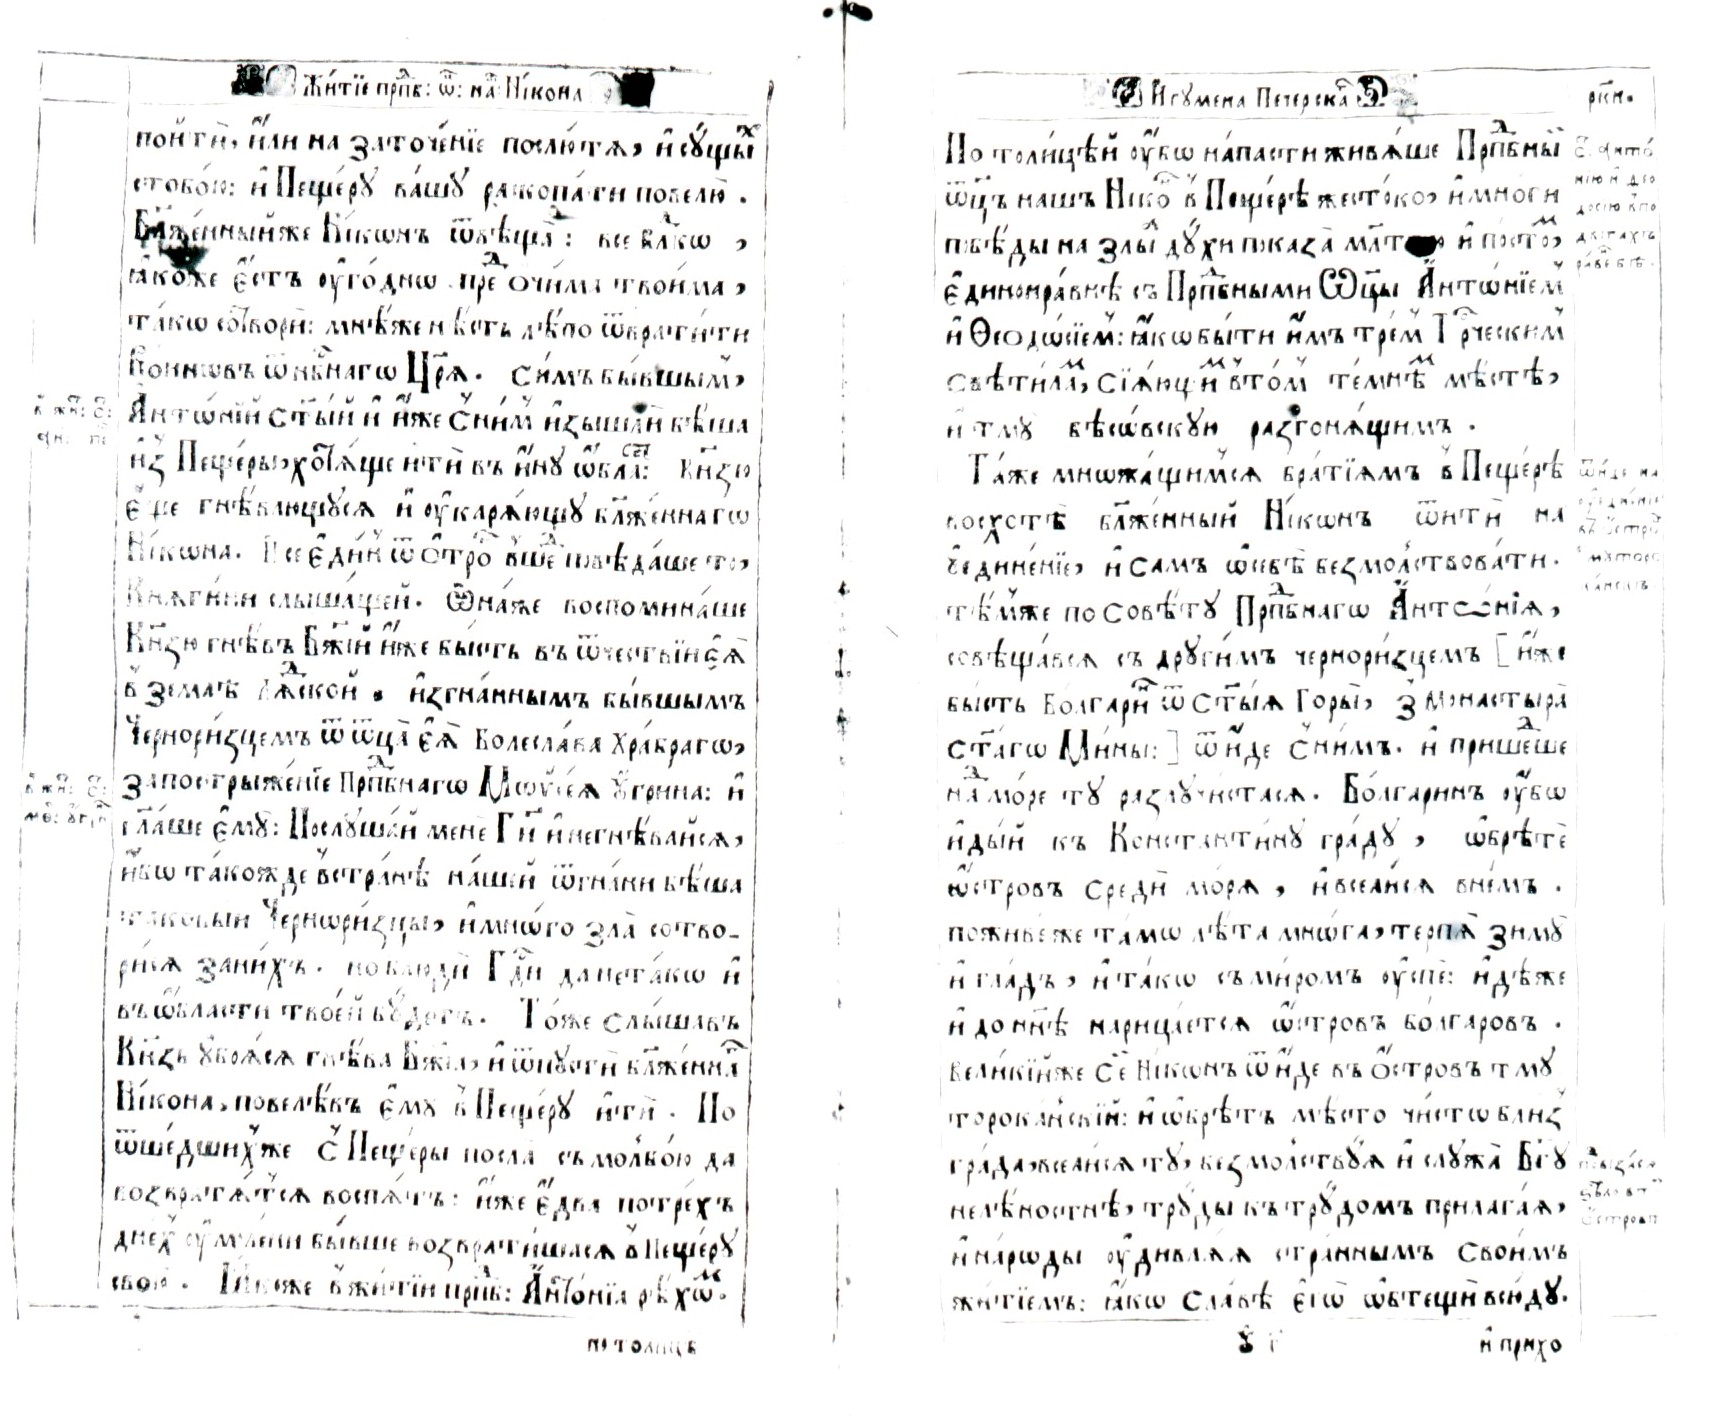 Житїе прпⷣб: ѿ: нⷲа: Нікона
пойтѝ, и҆лѝ на заточе́нїе послю́тѧ, и҆ су́щыѧ
стобо́ю: и҆ Пеще́ру ва́шу раскопа́ти повелю̀.
Бл҃же́нныйже Ні́конъ ѿвѣща̀: все влⷣко,
ꙗ҆́коже є҆́стъ ᲂу҆го́днѡ преⷣ ѻчи́ма твои́ма,
та́кѡ сотворѝ: мнѣ́же нѣ́сть лѣ́по ѿврати́ти
Во́инѡвъ ѿ нбⷭ҇нагѡ Цр҃ѧ̀. Си́мъ бы́вшымъ,
А҆нтѡ́нїй ст҃ы́й и҆ и҆̀же с̾ни́мъ и҆зышлѝ бѣ́ша
и҆з̾ Пеще́ры, хотѧ́ще итѝ въ и҆́ну ѡ҆́бласть: Кн҃зю
є҆ще гнѣ́вающусѧ и҆ ᲂу҆карѧ́ющу бл҃же́ннагѡ
Ні́кона. Се є҆ди́нъ ѿ ѻ҆трокъ вше́дъ повѣ́даше то,
Кнѧги́ни слы́шащей. Ѻ҆на́же воспомина́ше
Кн҃зю гнѣ́въ Бж҃їй и҆́же бы́сть въ ѿчествїи є҆ѧ̀
в̾ землѣ̀ Лѧ́дской. и҆згна́ннымъ бы́вшымъ
Чернори́зцемъ ѿ ѿца̀ є҆ѧ̀ Болесла́ва Хра́брагѡ,
за постриже́нїе Прпⷣбнагѡ Мѡѷсе́ѧ Ѹ҆́грина: и҆
гл҃а́ше є҆мꙋ̀: Послу́шай менѐ Гⷭ҇и и҆ негнѣ́вайсѧ,
и҆́бѡ та́кожде в̾стра́нѣ на́шей ѿгна́ни бѣ́ша
таковы́и Чернори́зцы, и҆ мно́го зла̀ сотво-
ри́сѧ за ни́хъ. но блюдѝ Гдⷭ҇и да нета́кѡ и҆
въ ѡ҆́бласти твое́й бу́детъ. То́же слы́шавъ
Кн҃зь убоѧ́сѧ гнѣ́ва Бж҃їѧ, и҆ ѿпустѝ бл҃же́ннаг
Ні́кона, повелѣ́въ є҆му̀ в̾ Пеще́ру и҆тѝ. По
ѿше́дшихже с̾ Пеще́ры посла̀ съ молбо́ю да
возвратѧ́тсѧ воспѧ́ть: и҆̀же є҆два̀ по тре́хъ
дне́хъ ᲂу҆мо́лени бы́вше возврати́шасѧ в̾ Пеще́ру
свою̀. Ꙗ҆́коже в̾ жи́тїи прпⷣб: А҆нто́нїѧ рѣ́хѡмъ.
по толицѣ
И҆гумена Печерскаⷢ
рк҃и.
По толи́цѣй ᲂу҆́бѡ напа́сти живѧ́ше Прпⷣбный
ѿц҃ъ нашъ Нико́нъ в̾ Пеще́рѣ жесто́ко, и҆ мно́ги
побѣ́ды на злы́ѧ ду́хи показа̀ и҆ посто́мъ,
є҆динонра́внѣ съ Прпⷣбными Ѻц҃ы А҆нтѡ́нїем
и҆ Ѳеодѡ́сїем: ꙗ҆́кѡ бы́ти и҆̀мъ тре́м Гре́ческим
Свѣти́лам, Сїѧ́ющим в̾ то́м те́мнѣм мѣ́стѣ,
и҆ тму̀ бѣсѡ́вскую разгонѧ́щимъ.
Та́же мно́жащимсѧ бра́тїѧмъ в̾ Пеще́рѣ
восхотѣ̀ бл҃же́нный Ні́конъ ѿитѝ на
уедине́нїе, и҆ Самъ ѡ҆себѣ̀ безмо́лствовати.
тѣ́мже по Совѣ́ту Прпⷣбнагѡ А҆нтѡ́нїѧ,
совѣща́всѧ съ други́мъ чернори́зцемъ [и҆́же
бы́сть Болгари́нъ ѿ Ст҃ы́ѧ Горы̀, з̾ Монастырѧ̀
Ст҃а́гѡ Ми́ны:] ѿи́де с̾ни́мъ. и҆ прише́дше
на́д мо́ре ту разлучи́стасѧ. Бо́лгаринъ ᲂу҆́бѡ
и҆ды́й къ Константи́ну гра́ду, ѡ҆брѣ́те
ѻ҆́стровъ средѝ мо́рѧ, и҆ всели́сѧ вне́мъ.
поживе́же та́мѡ лѣ́та мнѡ́га, терпѧ̀ зи́му
и҆ гла́дъ, и҆ та́кѡ съ ми́ромъ ᲂу҆́спе: и҆дѣ́же
и҆ до нн҃ѣ нарица́етсѧ ѻ҆́стровъ бо́лгаровъ.
Вели́кїйже се́й Ні́конъ ѿи́де въ ѻ҆́стровъ тму
торока́нскїй: и҆ ѡ҆брѣ́тъ мѣ́сто чи́сто бли́з
гра́да, всели́сѧ ту, безмо́лствуѧ и҆ служа̀ Бг҃у
нелѣ́ностнѣ, тру́ды къ тру́дом прилага́ѧ,
и҆ наро́ды ᲂу҆дивлѧ́ѧ стра́ннымъ Свои́мъ
житїе́мъ: ꙗ҆́кѡ сла́вѣ є҆гѡ̀ ѡ҆бтещѝ всю́ду.
и҆ прихо